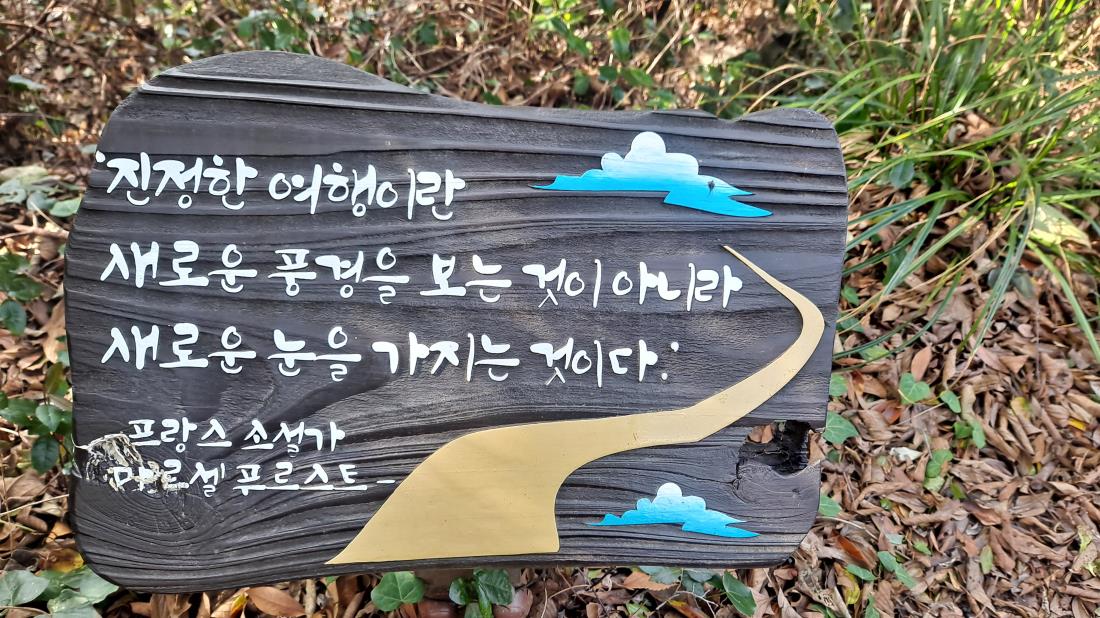 '진정한 여행이란
새로운 풍경을 보는 것이 아니라
새로운 눈을 가지는 것이다.'
프랑스 소설가
마르셀 푸르스트-